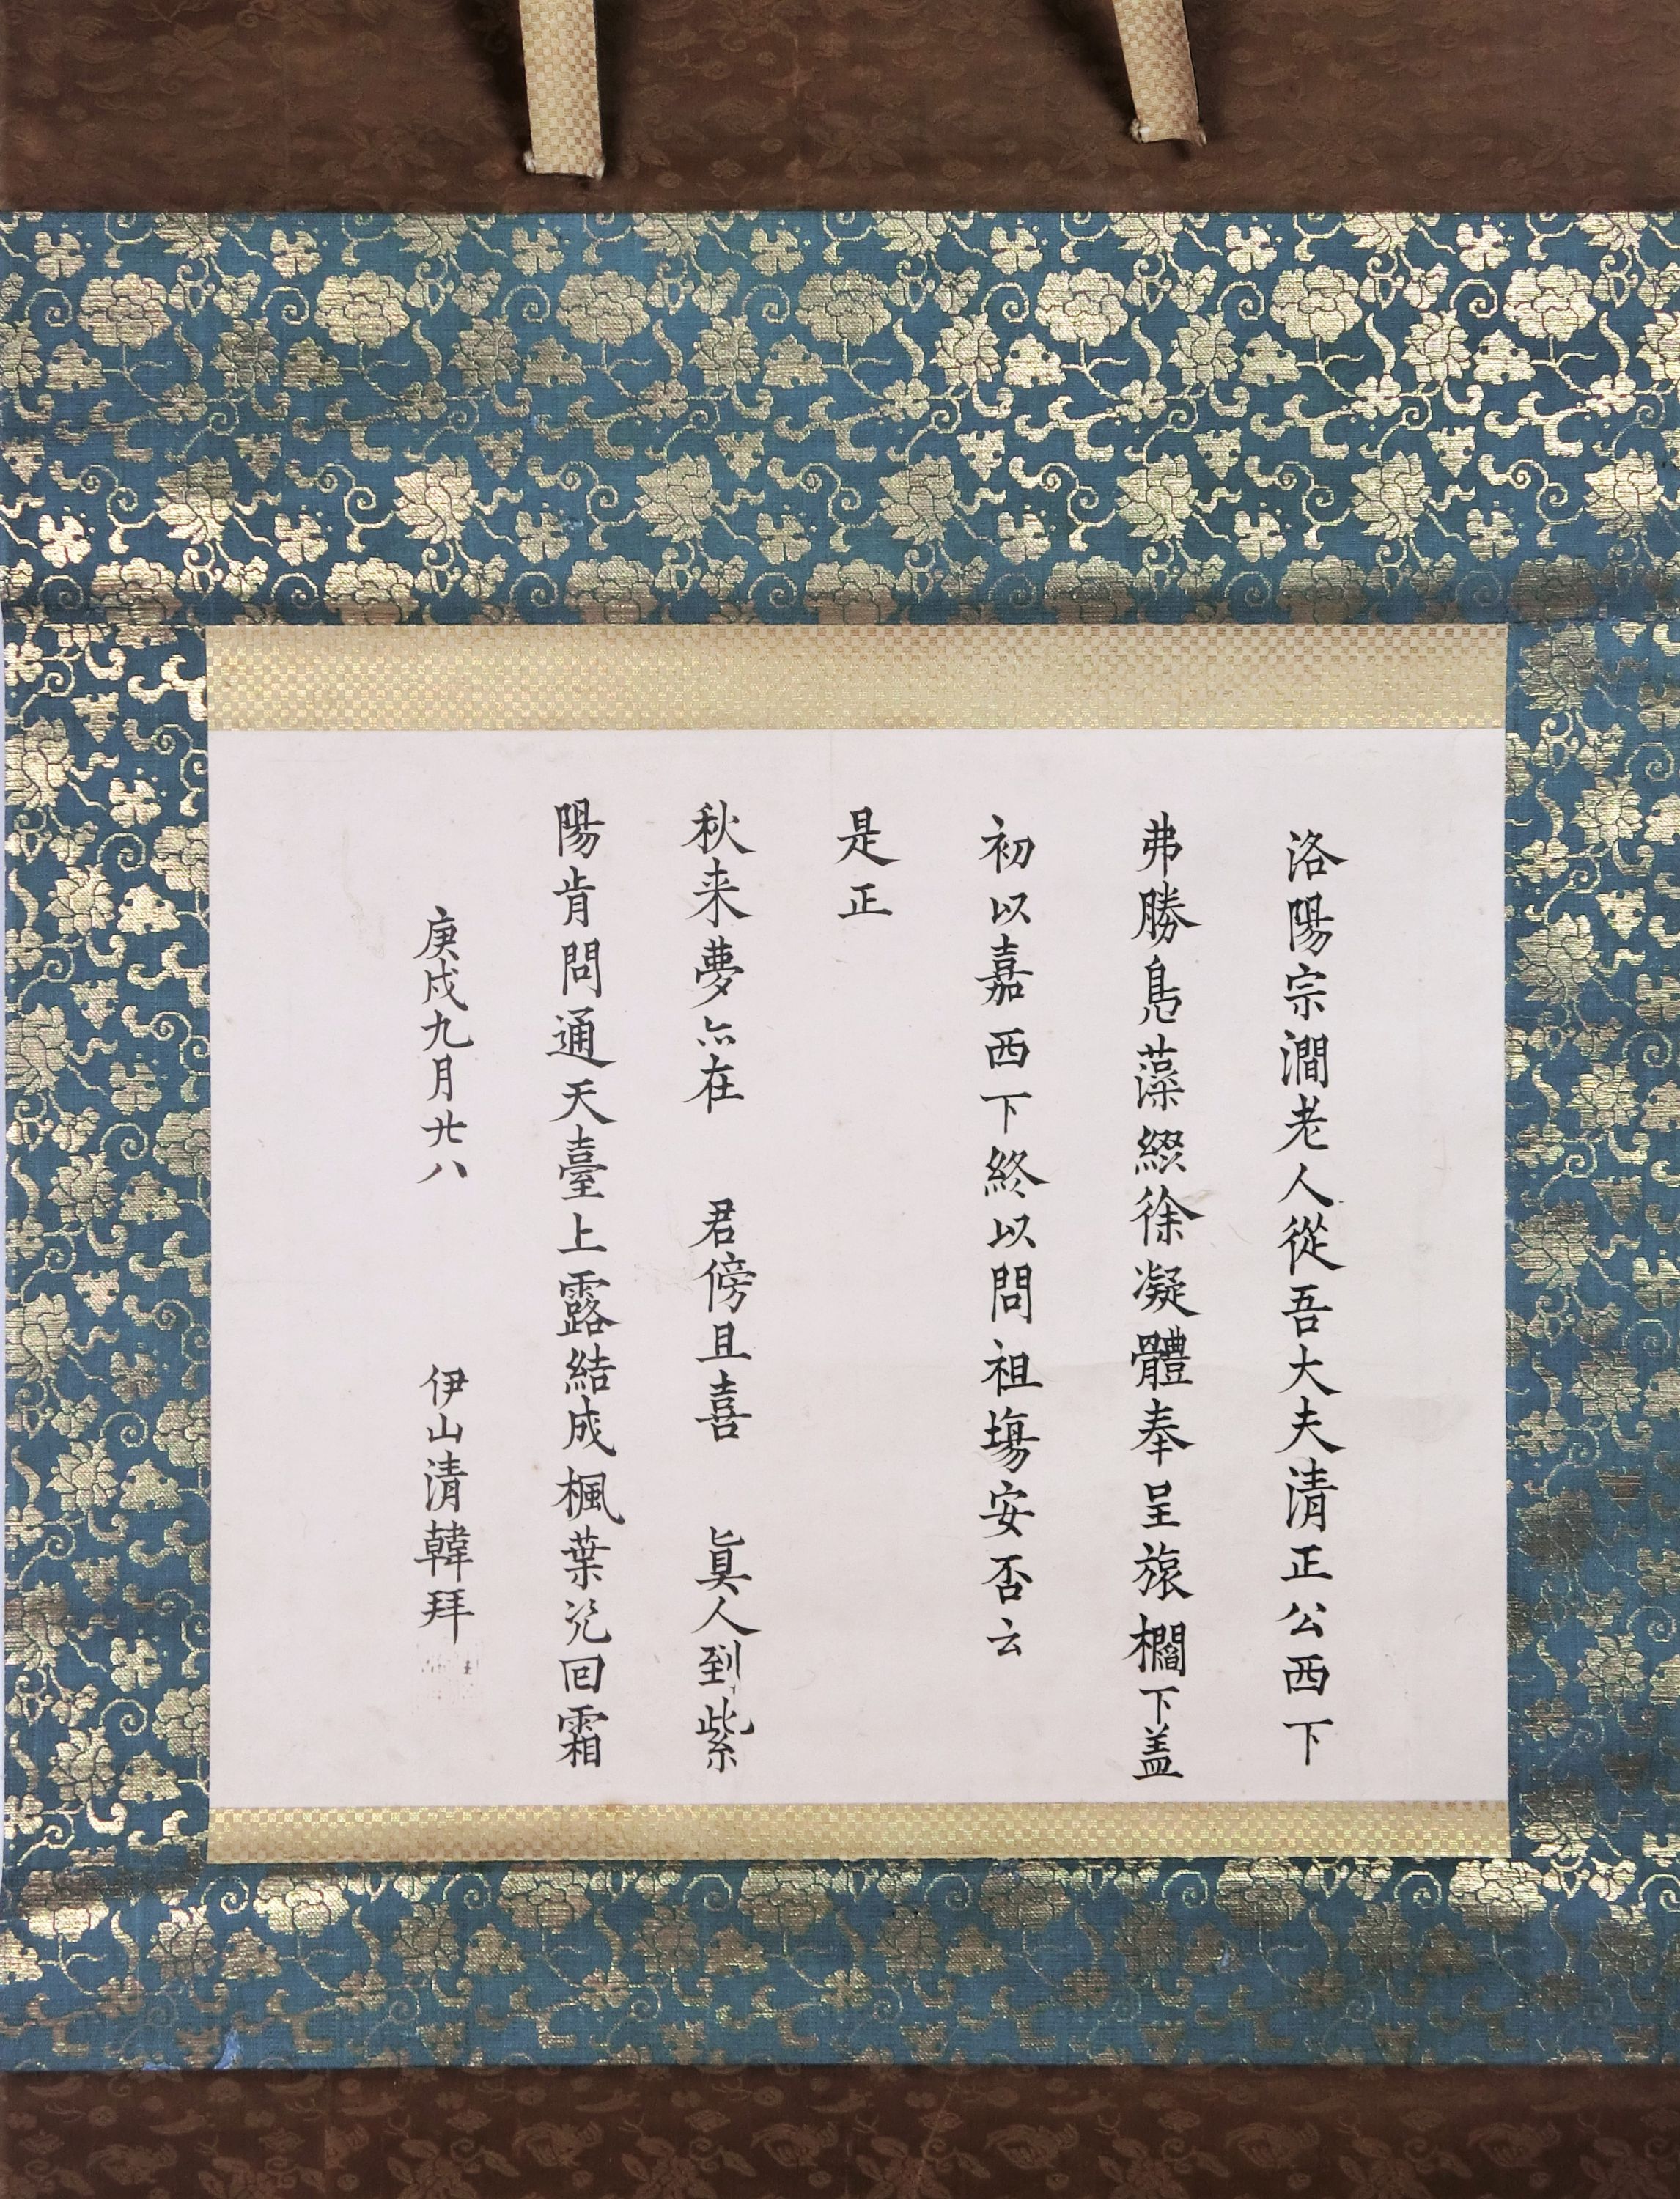 洛陽宗澗老人從吾大夫清正公西下
弗勝鳧藻綴徐凝體奉呈旅櫩下盖
初以嘉西下終以問祖塲安否云
是正
秋来夢亦在　君傍且喜　眞人到紫
陽肯問通天臺上露結成楓葉幾回霜
庚戌九月廿八　伊山清韓拜